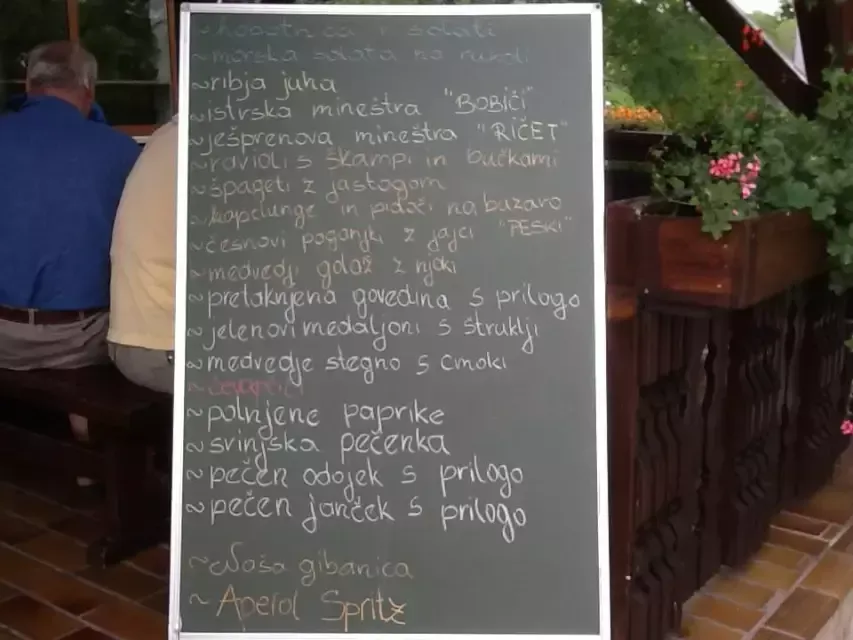 ~hobotnica v solati
~morska solata na rukoli
~ribja juha
~istrska mineštra "BOBIČI"
~ješprenova mineštra "RIČET"
~ravioli s škampi in bučkami
~špageti z jastogom
~kapelunge in pidoči na buzaro
~česnovi poganjki z jajci "PESKI"
~medvedji golaž z njoki
~pretaknjena govedina s prilogo
~jelenovi medaljoni s štruklji
~medvedje stegno s cmoki
~čevapčiči
~polnjene paprike
~svinjska pečenka
~pečen odojek s prilogo
~pečen janček s prilogo
~Naša gibanica
~Aperol Spritz